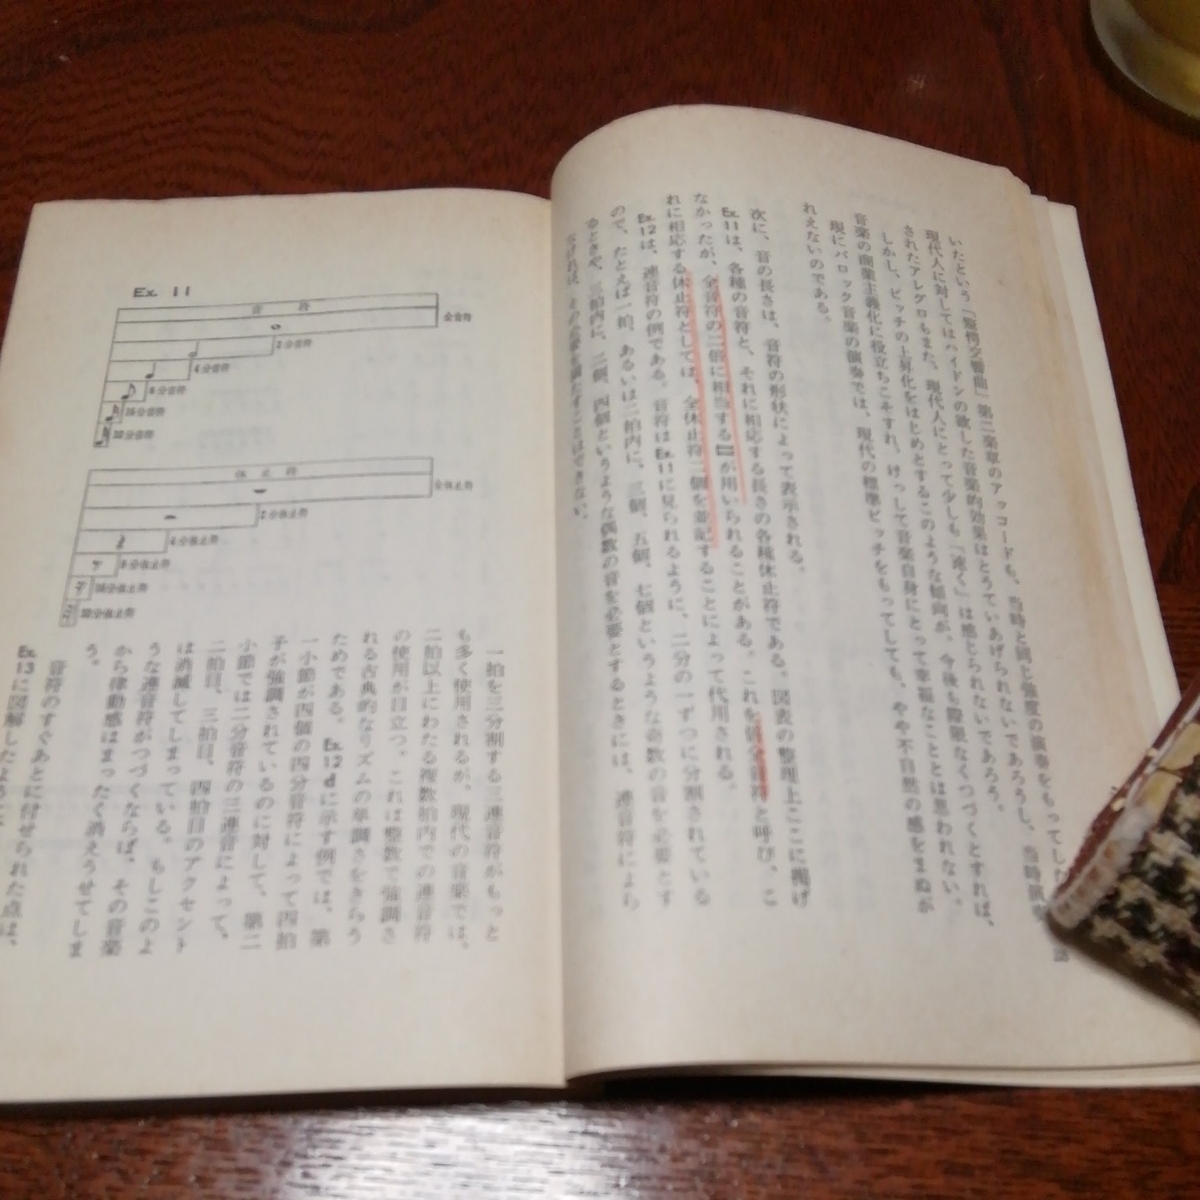 いたという「驚愕交響曲」第二楽章のアッコードも、当時と同じ強度の演奏をもってした
現代人に対してはハイドンの欲した音楽的効果はとうていあげられないであろうし、当時演奏
されたアレグロもまた、現代人にとって少しも「速く」は感じられないであろう。
しかし、ピッチの上昇化をはじめとするこのような傾向が、今後も際限なくつづくとすれば、
音楽の商業主義化に役立ちこそすれ、けっして音楽自身にとって幸福なこととは思われない。
現にバロック音楽の演奏では、現代の標準ピッチをもってしても、やや不自然の感をまぬが
れえないのである。
次に、音の長さは、音符の形状によって表示される。
Ex. 11は、各種の音符と、それに相応する長さの各種休止符である。図表の整理上ここに掲げ
なかったが、全音符の二倍に相当する𝄺が用いられることがある。これを倍全音符と呼び、こ
れに相応する休止符としては、全休止符二個を並記することによって代用される。
Ex. 12は、連音符の例である。音符はEx. 11に見られるように、二分の一ずつに分割されている
ので、たとえば一拍、あるいは二拍内に、三個、五個、七個というような奇数の音を必要とす
るときや、三拍内に、二個、四個というような偶数の音を必要とするときには、連音符によら
Ex. 11
音符
全音符
2分音符
4分音符
8分音符
16分音符
32分音符
休止符
全休止符
2分休止符
4分休止符
8分休止符
16分休止符
32分休止符
一拍を三分割する三連音符がもっと
も多く使用されるが、現代の音楽では、
二拍以上にわたる複数拍内での連音符
の使用が目立つ。これは整数で強調さ
れる古典的なリズムの単調さをきらう
ためである。Ex. 12 dに示す例では、第
一小節が四個の四分音符によって四拍
子が強調されているのに対して、第二
小節では二分音符の三連音によって、
二拍目、三拍目、四拍目のアクセント
は消滅してしまっている。もしこのよ
うな連音符がつづくならば、その音楽
から律動感はまったく消えうせてしま
う。
音符のすぐあとに付せられた点は、
Ex. 13に図解したように